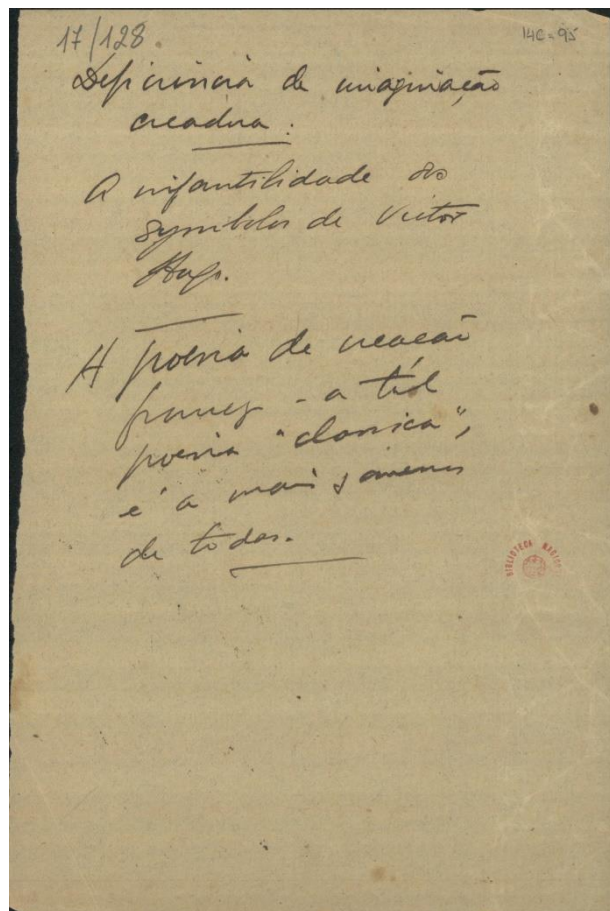 17/128.
14C-95
Deficiencia de imaginação
creadora:
A infantilidade dos
symbolos de Victor
Hugo.
A poesia de creação
franceza - a tal
poesia "classica",
é a mais
de todas.
BIBLIOTECA NACIONAL